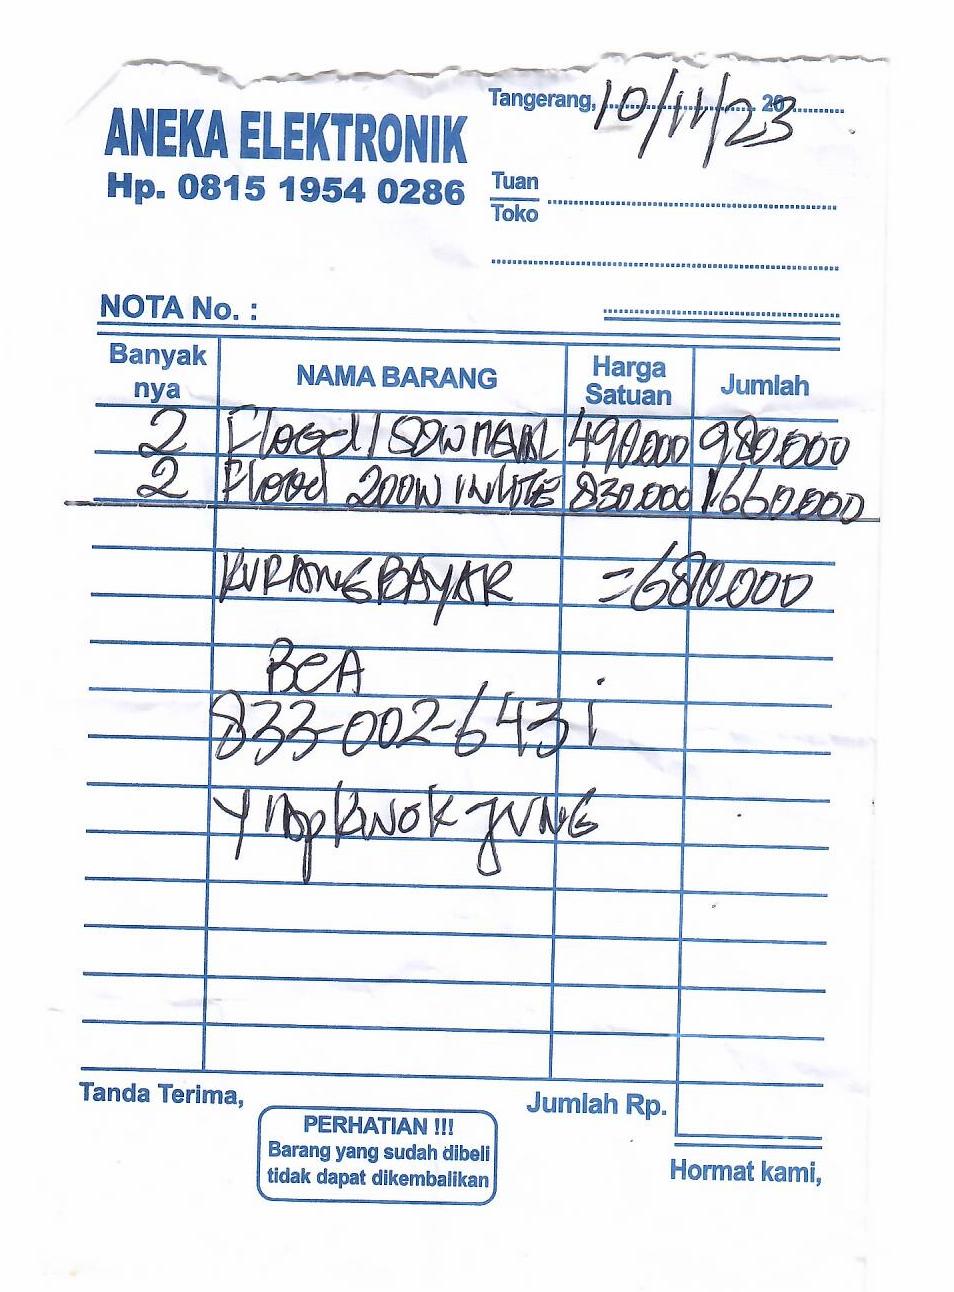 ANEKA ELEKTRONIK
Hp. 0815 1954 0286
Tangerang, 10/11/23 20
Tuan
Toko
NOTA No. :
Banyak nya NAMA BARANG Harga Satuan Jumlah
2 Flood 150W 490.000 980.000
2 Flood 200W INLITE 830.000 1.660.000
KURANG BAYAR = 680.000
BCA
833-002-6431
Yap KWOK JUNG
Tanda Terima,
Jumlah Rp.
PERHATIAN !!!
Barang yang sudah dibeli
tidak dapat dikembalikan
Hormat kami,